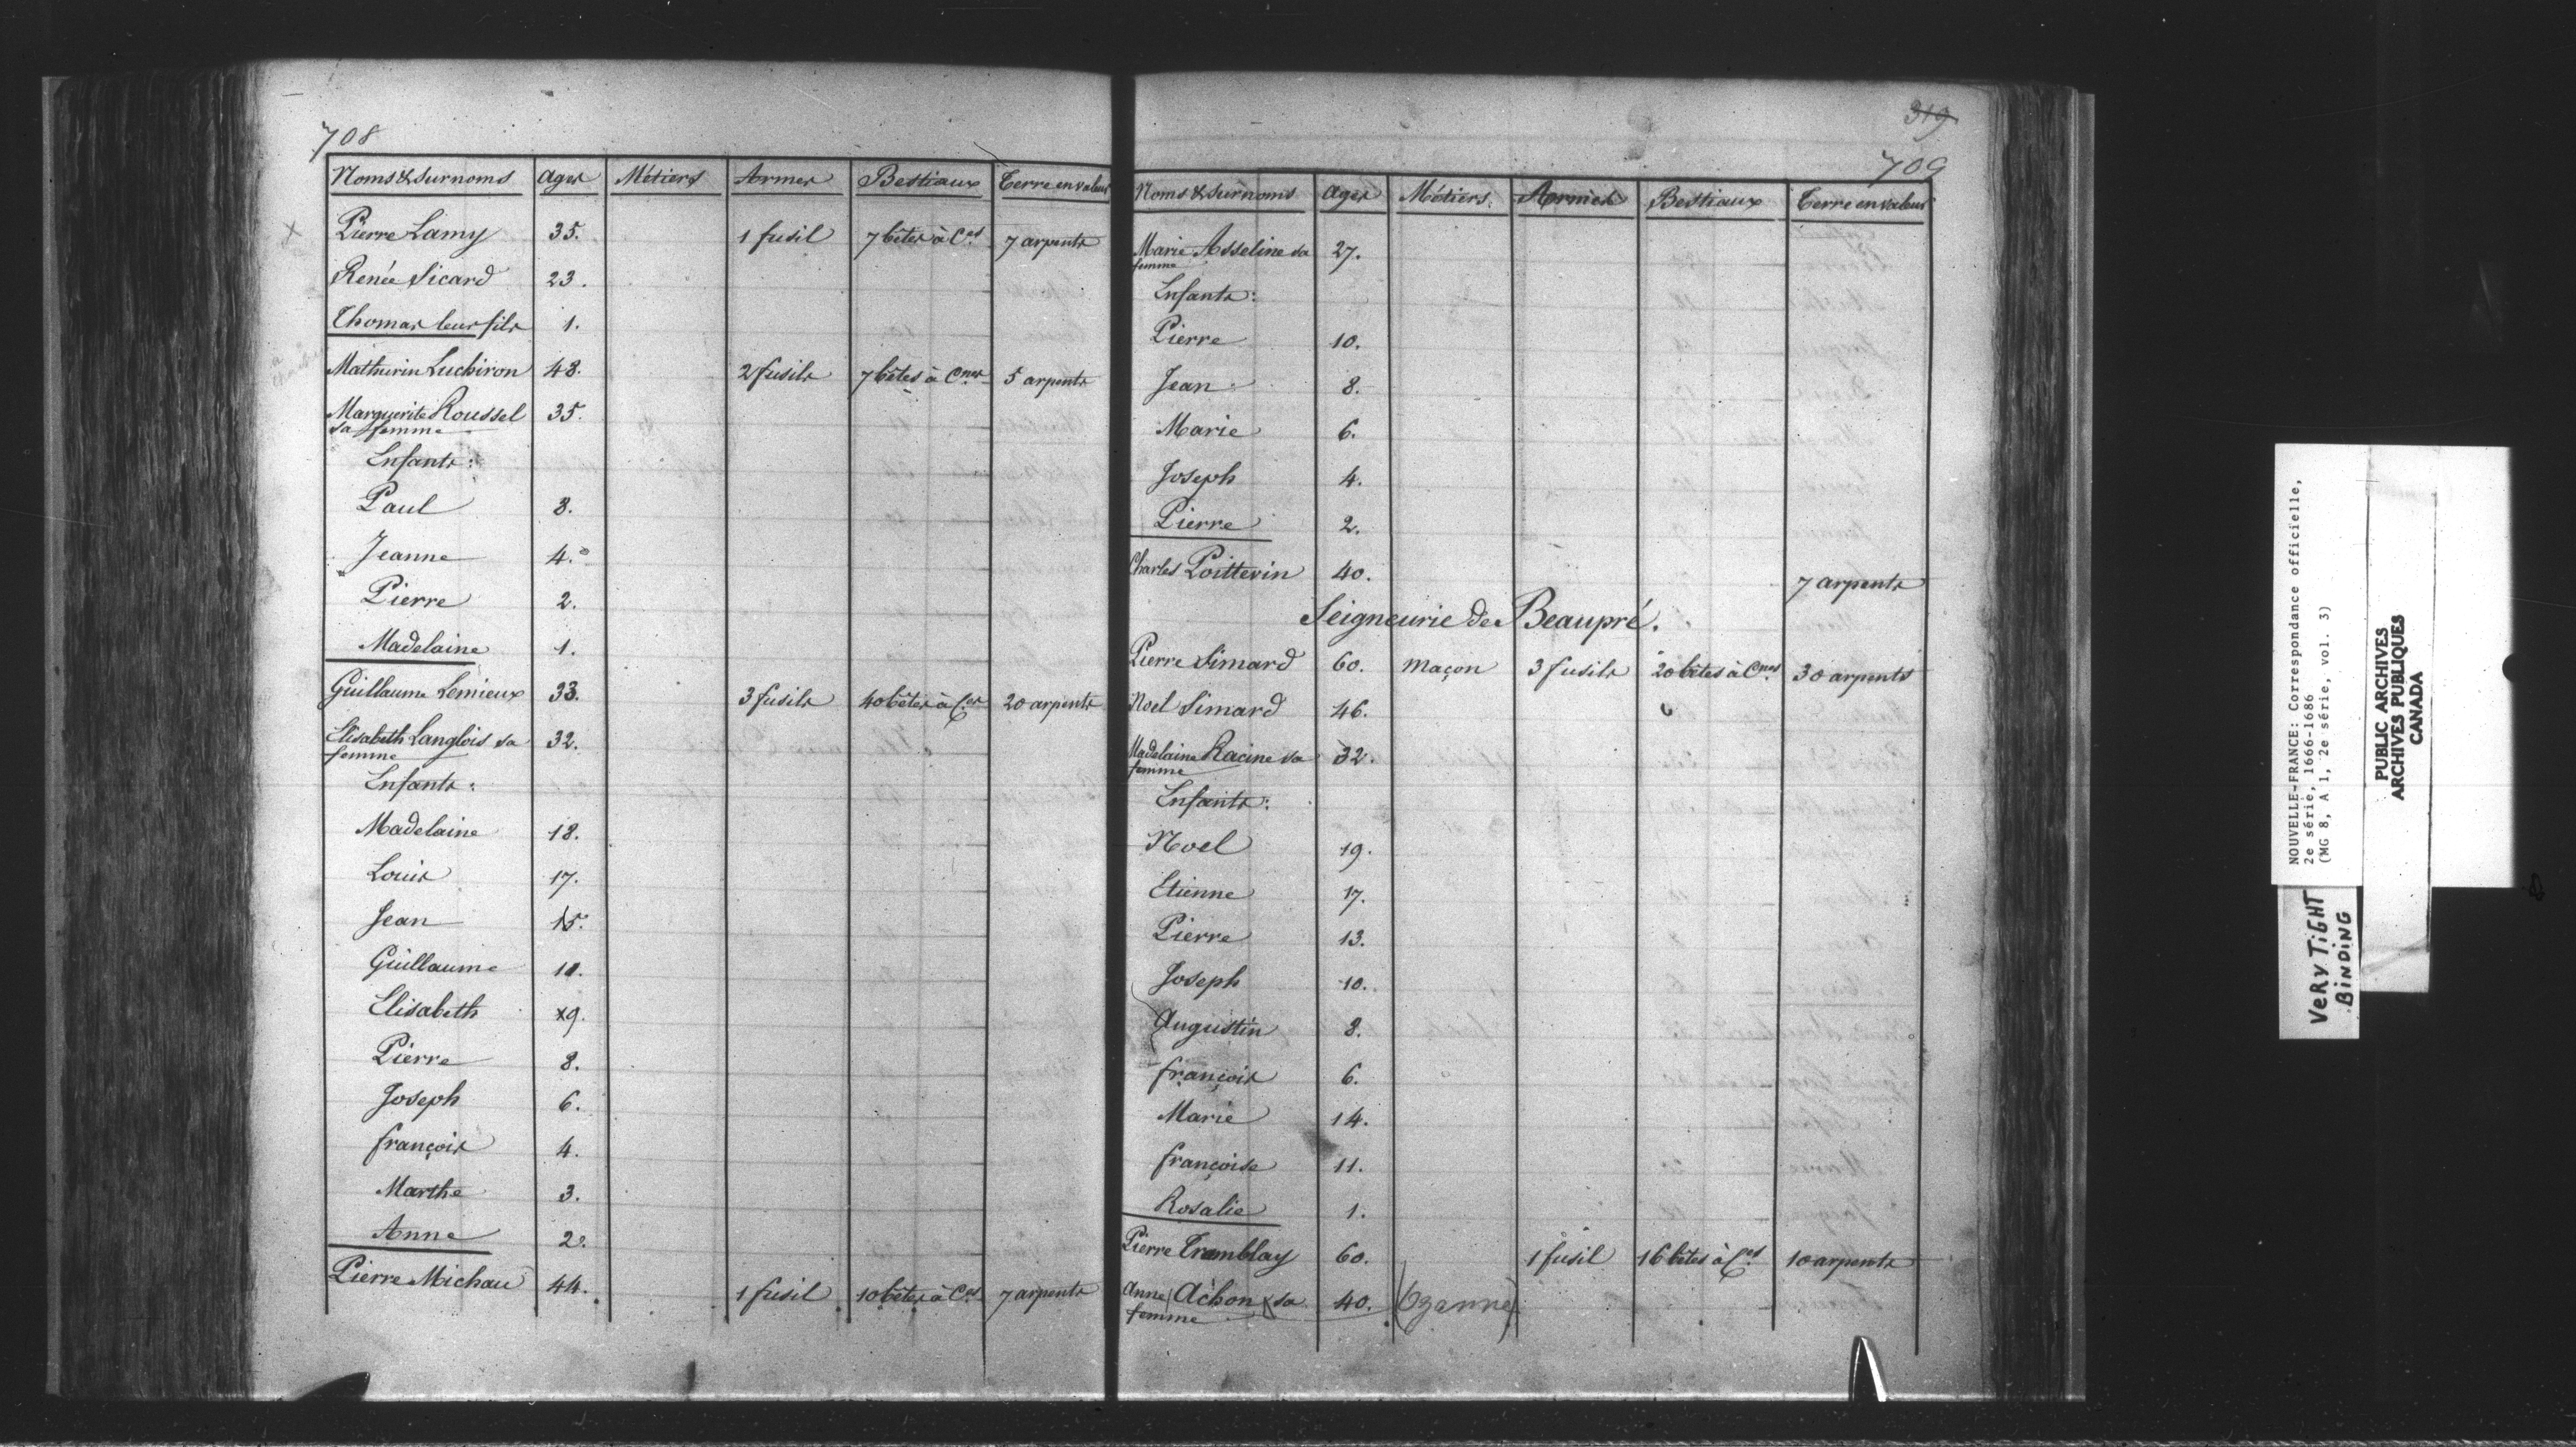 708
Noms & surnoms Ages Métiers Armes Bestiaux Terre en valeur
Pierre Lamy 35. 1 fusil 7 bêtes à Ces 7 arpents
Renée Sicard 23.
Thomas leur fils 1.
Mathurin Luchiron 48. 2 fusils 7 bêtes à Cnes 5 arpents
Marguerite Roussel 35.
sa femme
Enfants:
Paul 8.
Jeanne 4.
Pierre 2.
Madelaine 1.
Guillaume Lemieux 33. 3 fusils 40 bêtes à Ces 20 arpents
Elisabeth Langlois sa 32.
femme
Enfants:
Madelaine 18.
Louis 17.
Jean 15.
Guillaume 11.
Elisabeth 9.
Pierre 8.
Joseph 6.
françois 4.
Marthe 3.
Anne 2.
Pierre Michau 44. 1 fusil 10 bêtes à Ces 7 arpents
319
709
Noms & surnoms Ages Métiers Armes Bestiaux Terre en valeur
Marie Asseline sa 27.
femme
Enfants:
Pierre 10.
Jean 8.
Marie 6.
Joseph 4.
Pierre 2.
Charles Poittevin 40. 7 arpents
Seigneurie de Beaupré.
Pierre Simard 60. maçon 3 fusils 20 bêtes à Cnes 30 arpents
Noel Simard 46.
Madelaine Racine sa 32.
femme
Enfants:
Noel 19.
Etienne 17.
Pierre 13.
Joseph 10.
Augustin 8.
françois 6.
Marie 14.
françoise 11.
Rosalie 1.
Pierre Tremblay 60. 1 fusil 16 bêtes à Ces 10 arpents
Anne (Achon) sa 40. (Ozanne)
femme
NOUVELLE-FRANCE: Correspondance officielle,
2e série, 1666-1686
(MG 8, A 1, 2e série, vol. 3)
PUBLIC ARCHIVES
ARCHIVES PUBLIQUES
CANADA
VERY TiGHT
BiNDiNG